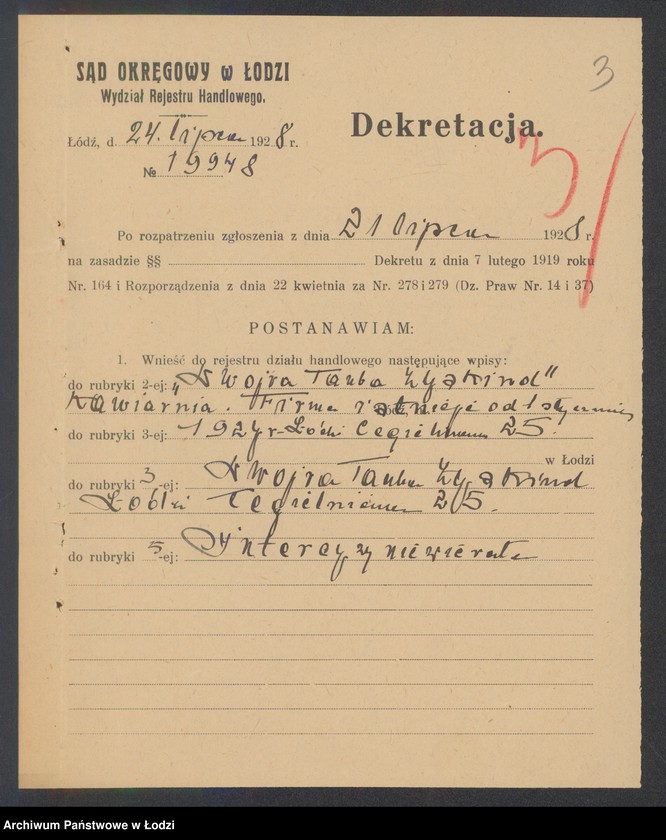 3
SĄD OKRĘGOWY w ŁODZI
Wydział Rejestru Handlowego.
Dekretacja.
Łódź, d. 24. lipca 1928 r.
№ 19948
3/
Po rozpatrzeniu zgłoszenia z dnia 21 lipca 1928 r.
na zasadzie §§ Dekretu z dnia 7 lutego 1919 roku
Nr. 164 i Rozporządzenia z dnia 22 kwietnia za Nr. 278 i 279 (Dz. Praw Nr. 14 i 37)
POSTANAWIAM:
1. Wnieść do rejestru działu handlowego następujące wpisy:
do rubryki 2-ej: „Dwojra Tauba Zyskind"
Kawiarnia. Firma istnieje od 1 stycznia
do rubryki 3-ej: 1927 r. Łódź Cegielniana 25.
w Łodzi
do rubryki 3-ej: Dwojra Tauba Zyskind
Łódź Cegielniana 25.
do rubryki 5-ej: Intercyzy nie
Archiwum Państwowe w Łodzi